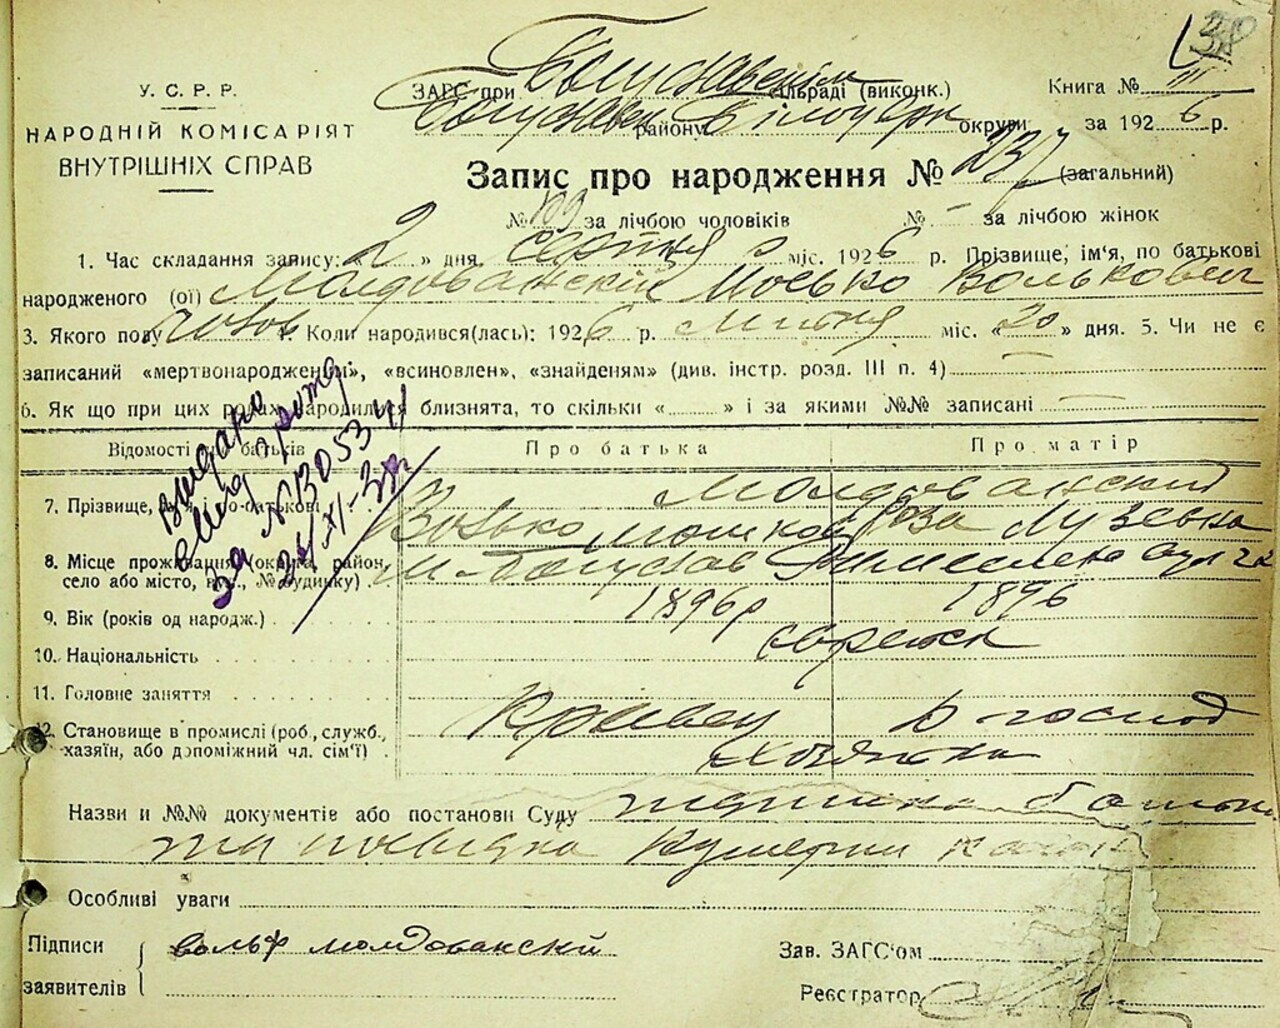 38
У. С. Р. Р.
НАРОДНІЙ КОМІСАРІЯТ
ВНУТРІШНІХ СПРАВ
ЗАГС при Богуславській сільраді (виконк.) Книга № III
Богуславськ району Білоцерк округи за 1926 р.
Запис про народження № 237 (загальний)
№ 109 за лічбою чоловіків № – за лічбою жінок
1. Час складання запису: „2“ дня серпня міс. 1926 р. Прізвище, ім'я, по батькові
народженого (ої) Молдованскій Мосько Волькович
3. Якого полу чолов 4. Коли народився(лась): 1926 р. Липня міс. «20» дня. 5. Чи не є
записаний «мертвонародженим», «всиновлен», «знайденям» (див. інстр. розд. III п. 4) —
6. Як що при цих родах народилися близнята, то скільки «......» і за якими №№ записані —
видано
за № 13053
Відомості про батьків Про батька Про матір
7. Прізвище, ім'я і по-батькові Молдованский
Волько Мошков Роза Лузевна
8. Місце проживання (округа, район,
село або місто, вул., № будинку) м. Богуслав вул 22
9. Вік (років од народж.) 1896 р 1896
10. Національність евреи
11. Головне заняття
Кравец д-господ
12. Становище в промислі (роб., служб.,
хазяїн, або допоміжний чл. сім'ї) хозяйка
Назви и №№ документів або постанови Суду
та посвідка
Особливі уваги
Підписи вольф молдованскій Зав. ЗАГС'ом
заявителів Реєстратор